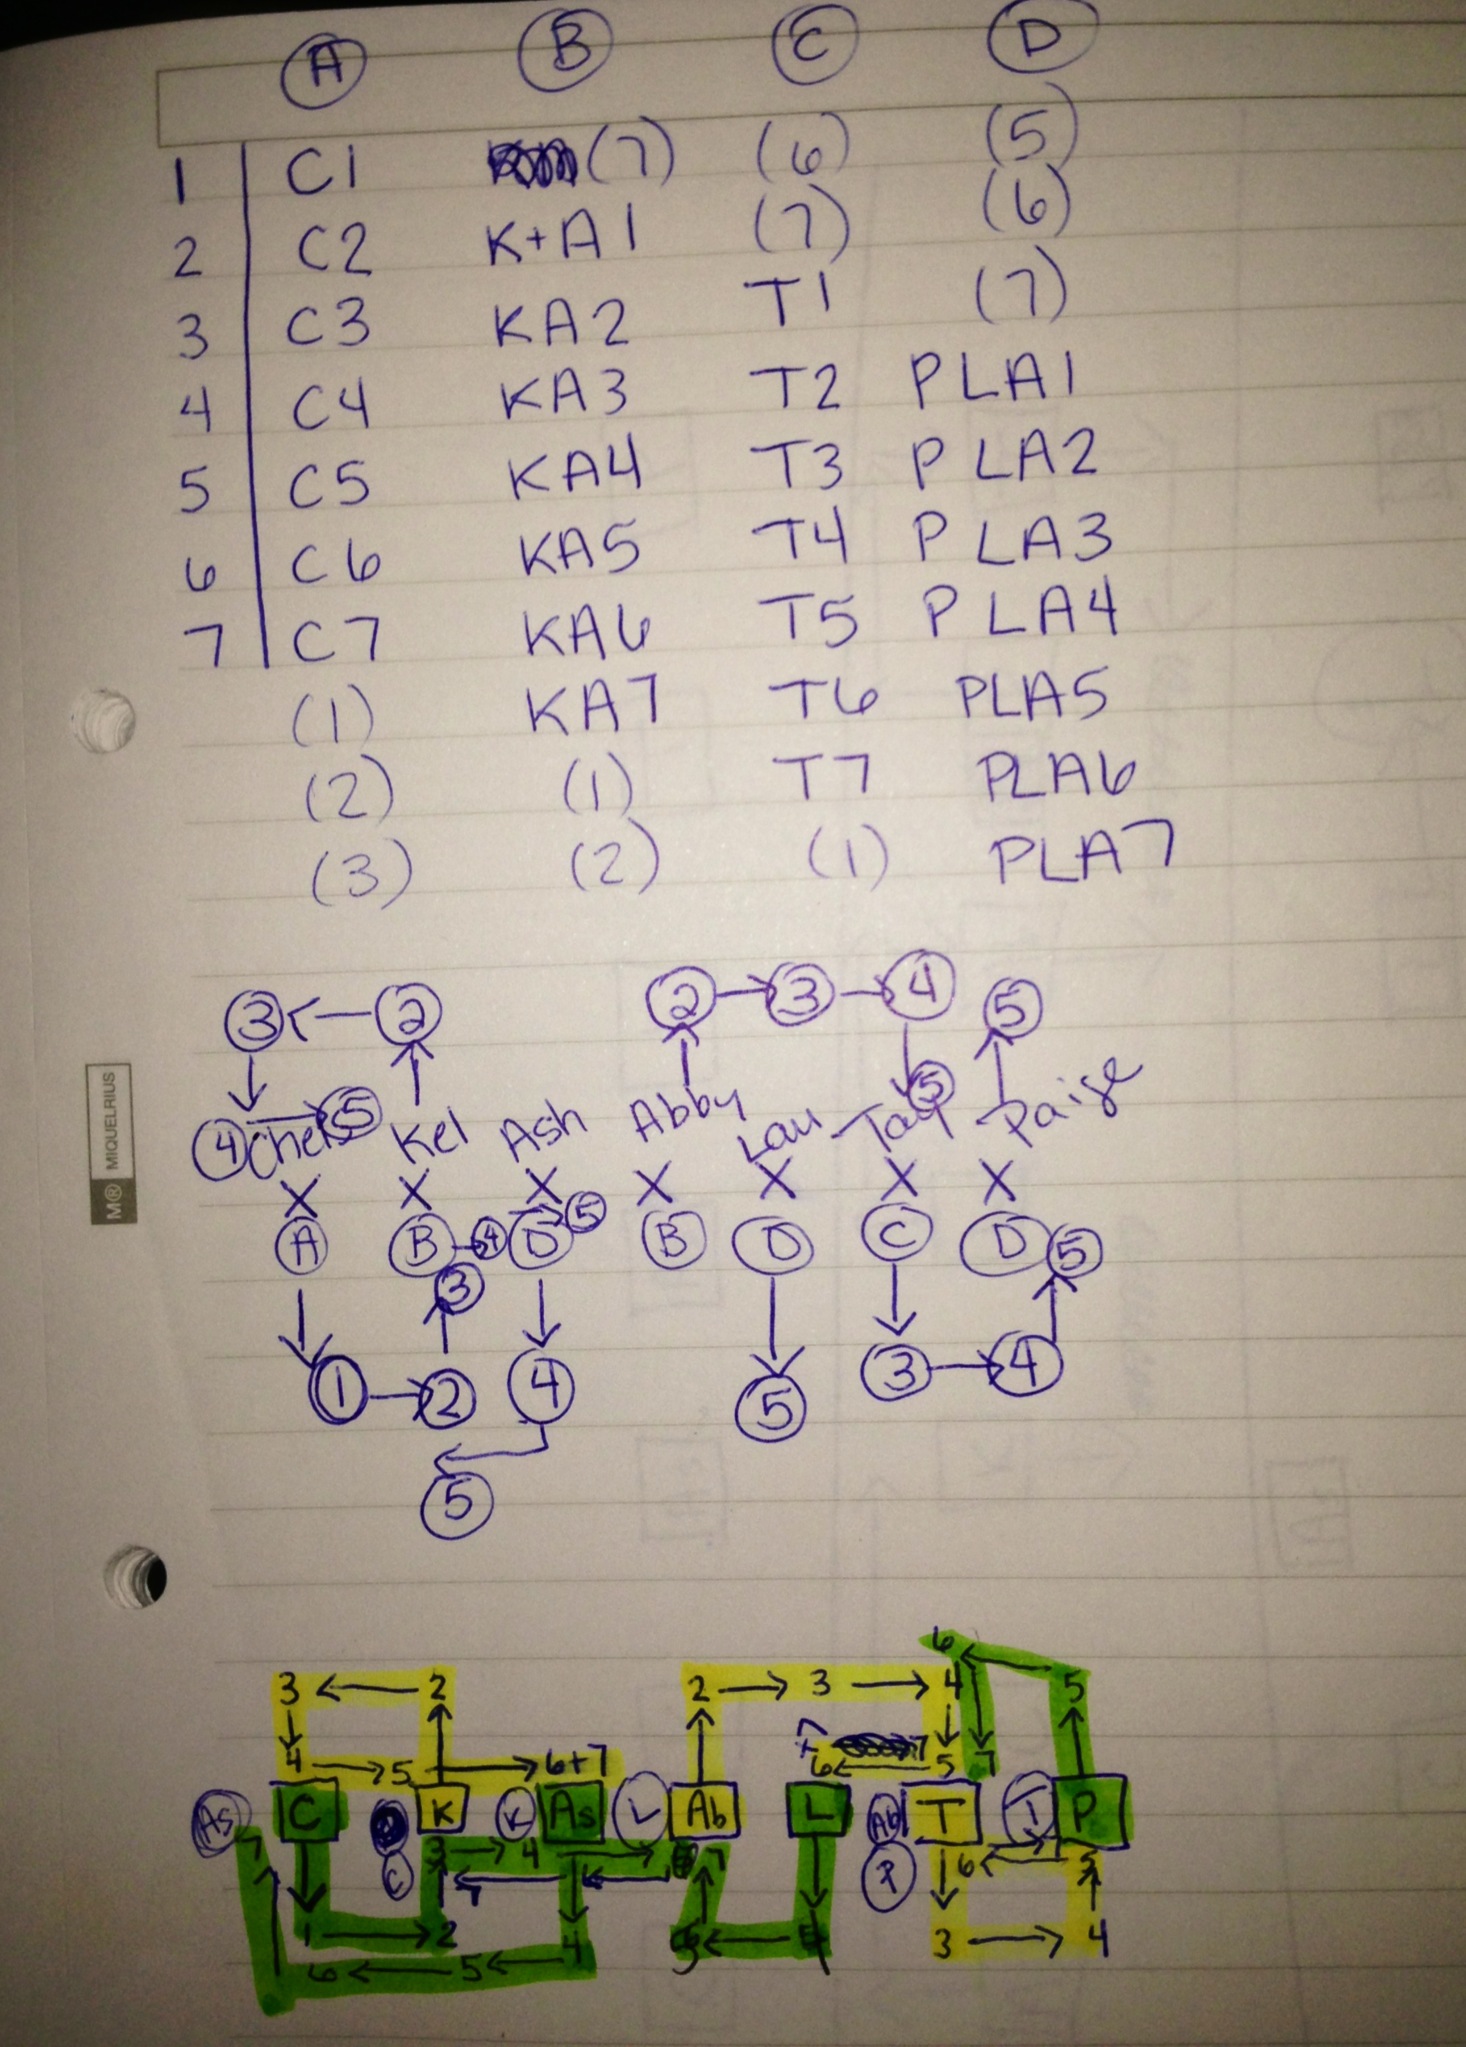 A B C D
1 C1 (7) (6) (5)
2 C2 K+A1 (7) (6)
3 C3 KA2 T1 (7)
4 C4 KA3 T2 PLA1
5 C5 KA4 T3 PLA2
6 C6 KA5 T4 PLA3
7 C7 KA6 T5 PLA4
(1) KA7 T6 PLA5
(2) (1) T7 PLA6
(3) (2) (1) PLA7
3 2 2 3 4 5
4 5 5
Kel Ash Abby Lau Tay Paige
X X X X X X X
A B 4 D 5 B D C D 5
3
1 2 4 5 3 4
5
M® MIQUELRIUS
6
3 2 2 3 4 5
7
4 5 6+7 6 5 7
As C K K As L Ab L Ab T T P
7 C 3 4 7 P 6 5
7
1 2 4 3 4
6 5